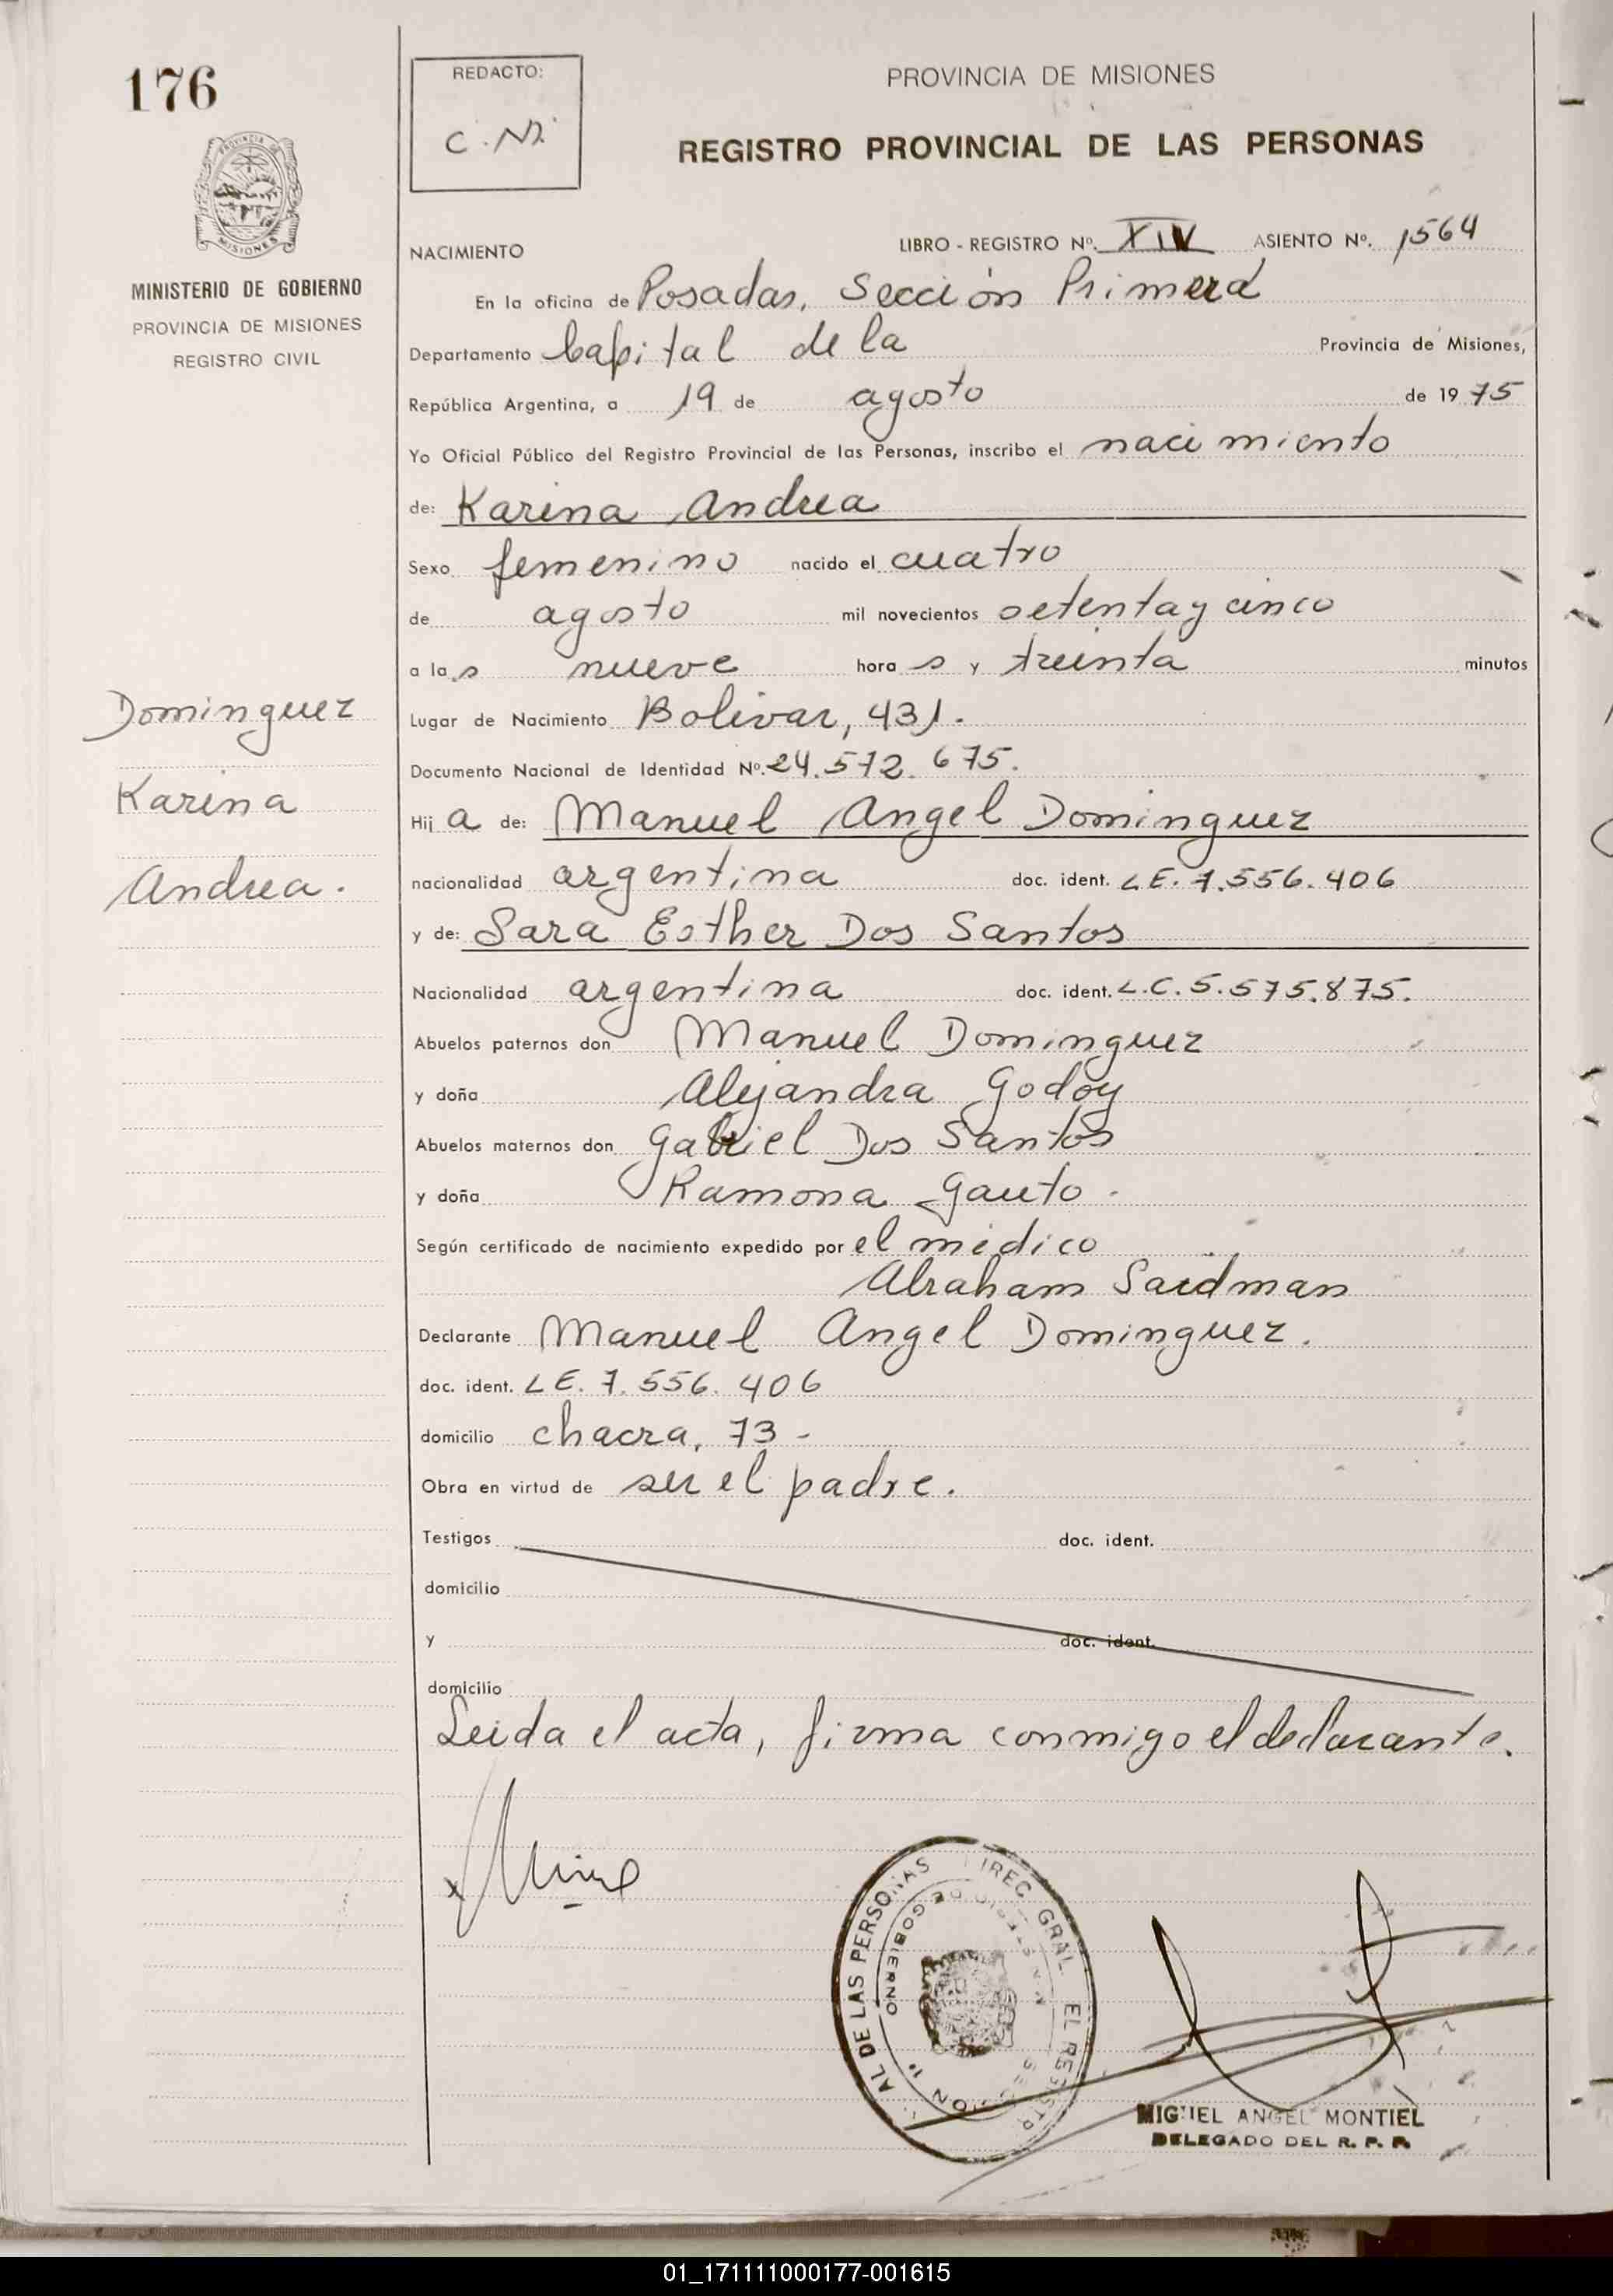 176
PROVINCIA DE MISIONES
MINISTERIO DE GOBIERNO
PROVINCIA DE MISIONES
REGISTRO CIVIL
Dominguez
Karina
Andrea.
REDACTO:
C.N.
PROVINCIA DE MISIONES
REGISTRO PROVINCIAL DE LAS PERSONAS
NACIMIENTO LIBRO - REGISTRO Nº. XIV ASIENTO Nº. 1564
En la oficina de Posadas, Sección Primera
Departamento Capital de la Provincia de Misiones,
República Argentina, a 19 de agosto de 1975
Yo Oficial Público del Registro Provincial de las Personas, inscribo el nacimiento
de: Karina Andrea
Sexo femenino nacido el cuatro
de agosto mil novecientos setenta y cinco
a las nueve horas y treinta minutos
Lugar de Nacimiento Bolivar, 431.
Documento Nacional de Identidad Nº. 24.572.675.
Hija de: Manuel Angel Dominguez
nacionalidad argentina doc. ident. LE. 7.556.406
y de: Sara Esther Dos Santos
Nacionalidad argentina doc. ident. L.C. 5.575.875.
Abuelos paternos don Manuel Dominguez
y doña Alejandra Godoy
Abuelos maternos don Gabriel Dos Santos
y doña Ramona Gauto.
Según certificado de nacimiento expedido por el médico
Abraham Saidman
Declarante Manuel Angel Dominguez.
doc. ident. LE. 7.556.406
domicilio chacra, 73-
Obra en virtud de ser el padre.
Testigos doc. ident.
domicilio
y doc. ident.
domicilio
Leida el acta, firma conmigo el declarante.
AL DE LAS PERSONAS
GOBIERNO
MIGUEL ANGEL MONTIEL
DELEGADO DEL R. P. P.
01_171111000177-001615